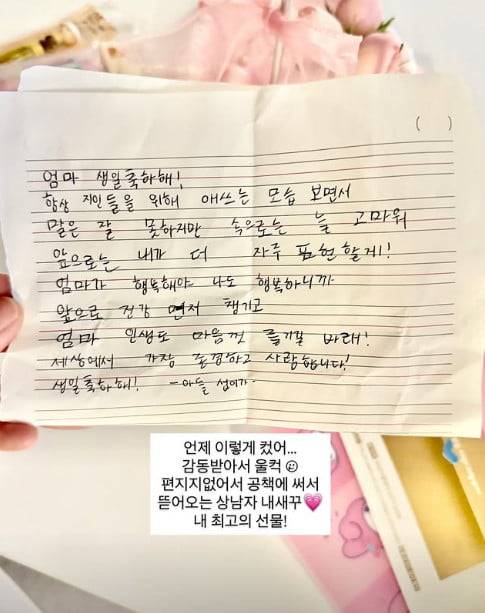 ( )
엄마 생일축하해!
항상 지인들을 위해 애쓰는 모습 보면서
말은 잘 못하지만 속으로는 늘 고마워
앞으로는 내가 더 자주 표현할게!
엄마가 행복해야 나도 행복하니까
앞으로 건강 먼저 챙기고
엄마 인생도 마음껏 즐기길 바래!
세상에서 가장 존경하고 사랑합니다!
생일축하해! -아들 섭이가-
언제 이렇게 컸어...
감동받아서 울컥 🥲
편지지없어서 공책에 써서
뜯어오는 상남자 내새꾸💗
내 최고의 선물!